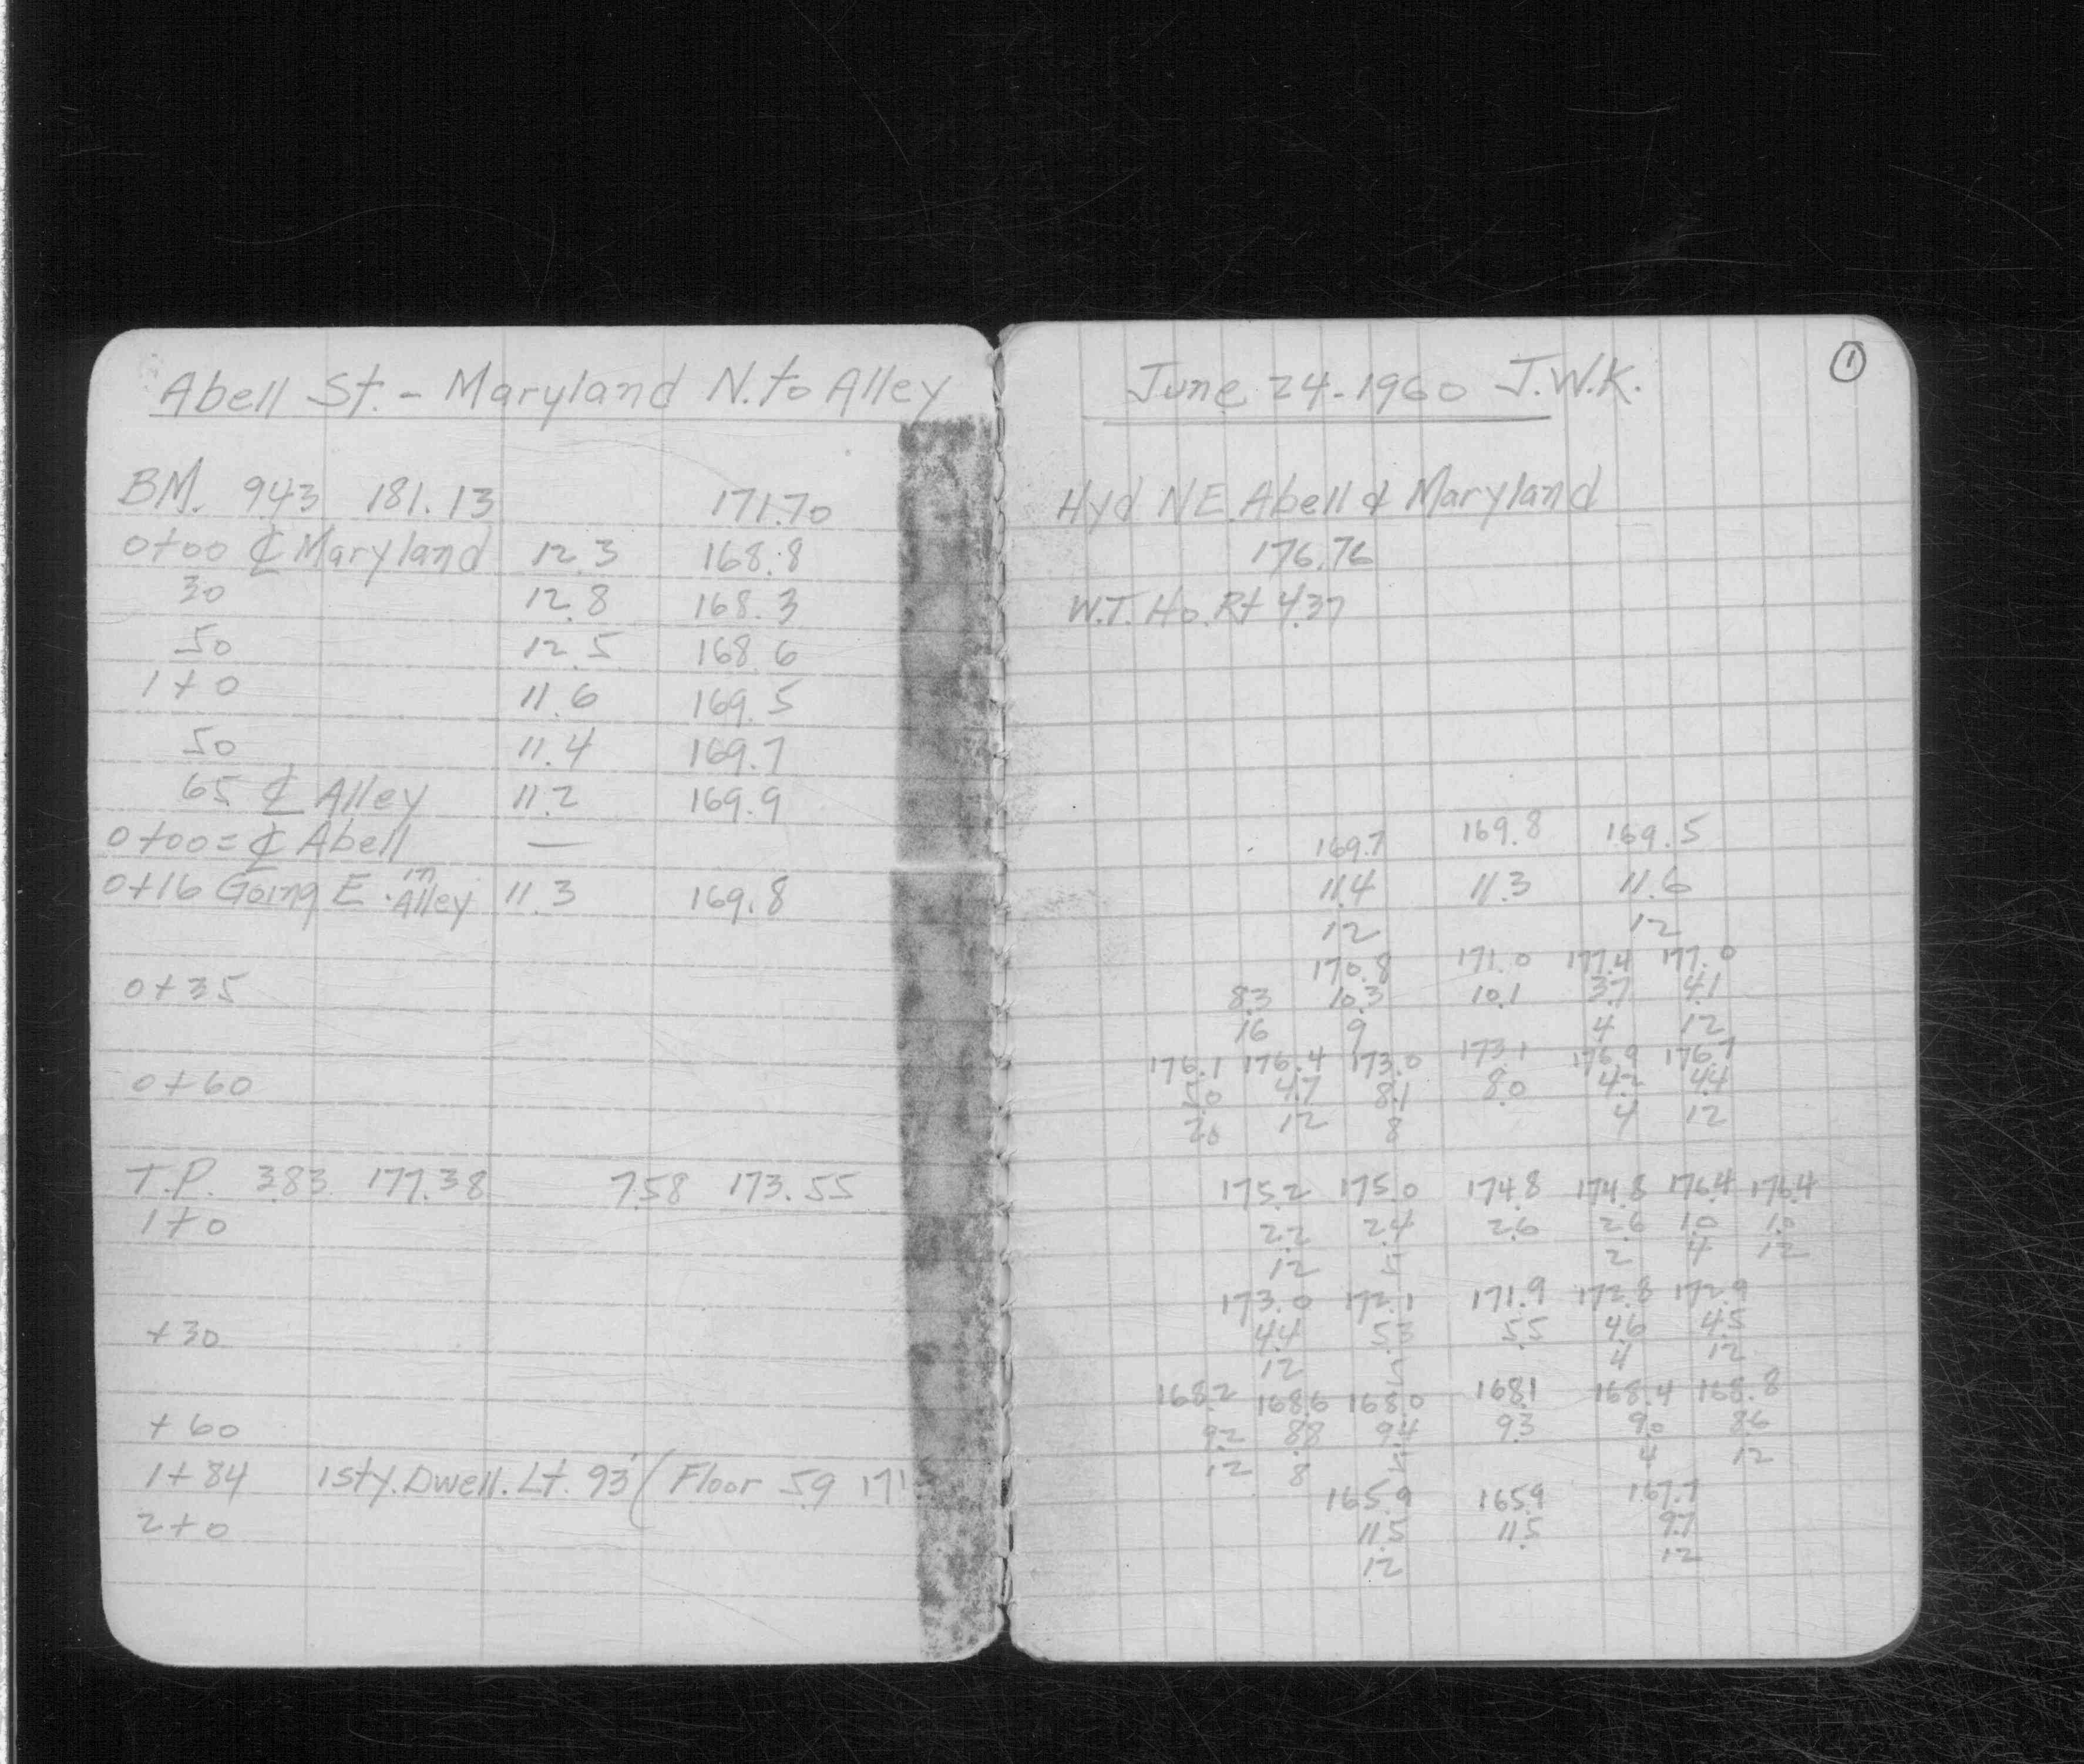 Abell St. - Maryland N. to Alley
BM. 9.43 181.13 171.70
0+00 ℄ Maryland 12.3 168.8
30 12.8 168.3
50 12.5 168.6
1+0 11.6 169.5
50 11.4 169.7
65 ℄ Alley 11.2 169.9
0+00 = ℄ Abell —
0+16 Going E. in Alley 11.3 169.8
0+35
0+60
T.P. 3.83 177.38 7.58 173.55
1+0
+30
+60
1+84 1 sty. Dwell. Lt. 93' ( Floor 5.9 171
2+0
June 24-1960 J.W.K.
1
Hyd NE. Abell & Maryland
176.76
W.T. Ho. Rt 4.37
169.7 169.8 169.5
11.4 11.3 11.6
12 12
170.8 171.0 177.4 177.0
8.3 10.3 10.1 3.7 4.1
16 9 4 12
176.1 176.4 173.0 173.1 176.9 176.7
5.0 4.7 8.1 8.0 4.2 4.4
20 12 8 4 12
175.2 175.0 174.8 174.8 176.4 176.4
2.2 2.4 2.6 2.6 1.0 1.0
12 5 2 4 12
173.0 172.1 171.9 172.8 172.9
4.4 5.3 5.5 4.6 4.5
12 5 4 12
168.2 168.6 168.0 168.1 168.4 168.8
9.2 8.8 9.4 9.3 9.0 8.6
12 8 4 12
165.9 165.9 167.7
11.5 11.5 9.7
12 12